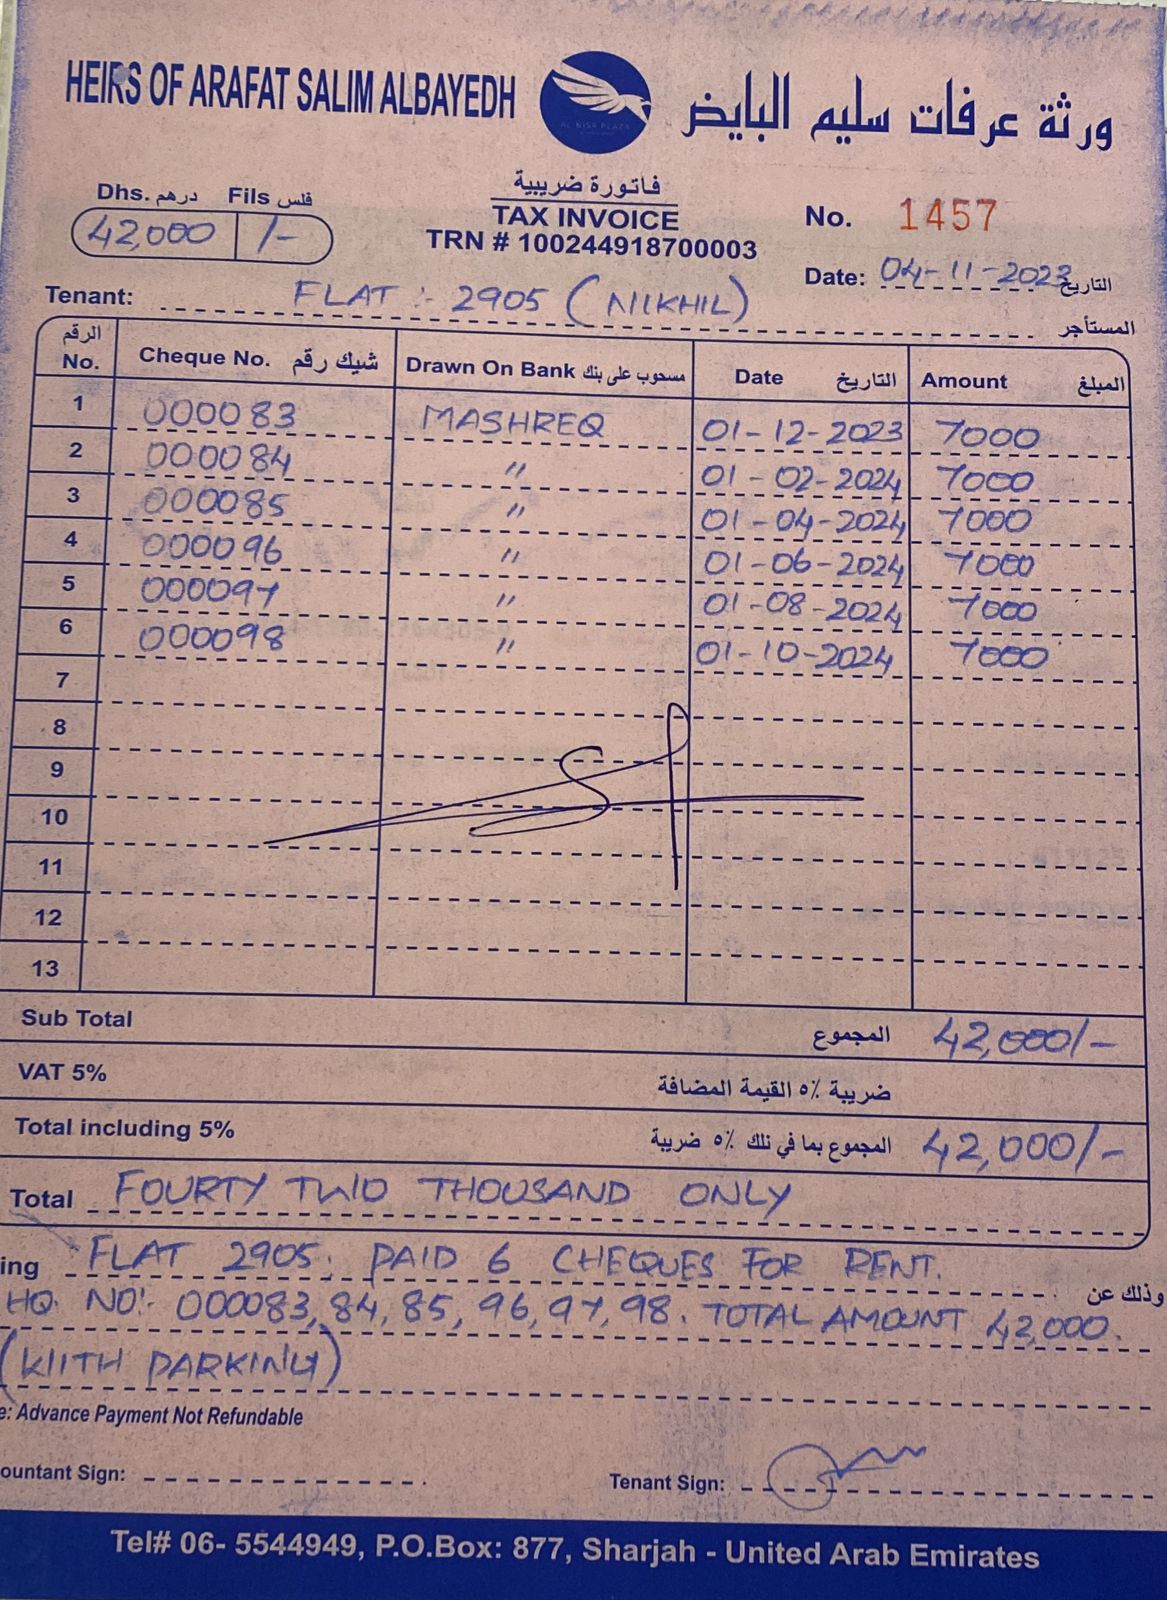 HEIRS OF ARAFAT SALIM ALBAYEDH
ورثة عرفات سليم البايض
AL NISR PLAZA
Dhs. درهم Fils فلس
42,000 /-
فاتورة ضريبية
TAX INVOICE
TRN # 100244918700003
No. 1457
Date: 04-11-2023 التاريخ
Tenant: FLAT :- 2905 (NIKHIL) المستأجر
الرقم No. Cheque No. شيك رقم Drawn On Bank مسحوب على بنك Date التاريخ Amount المبلغ
1 000083 MASHREQ 01-12-2023 7000
2 000084 " 01-02-2024 7000
3 000085 " 01-04-2024 7000
4 000096 " 01-06-2024 7000
5 000097 " 01-08-2024 7000
6 000098 " 01-10-2024 7000
7
8
9
10
11
12
13
Sub Total المجموع 42,000/-
VAT 5% ضريبة ٥٪ القيمة المضافة
Total including 5% المجموع بما في تلك ٥٪ ضريبة 42,000/-
Total FOURTY TWO THOUSAND ONLY
ing FLAT 2905. PAID 6 CHEQUES FOR RENT. وذلك عن
HQ. NO:- 000083, 84, 85, 96, 97, 98. TOTAL AMOUNT 42,000.
(WITH PARKING)
e: Advance Payment Not Refundable
ountant Sign: Tenant Sign:
Tel# 06- 5544949, P.O.Box: 877, Sharjah - United Arab Emirates